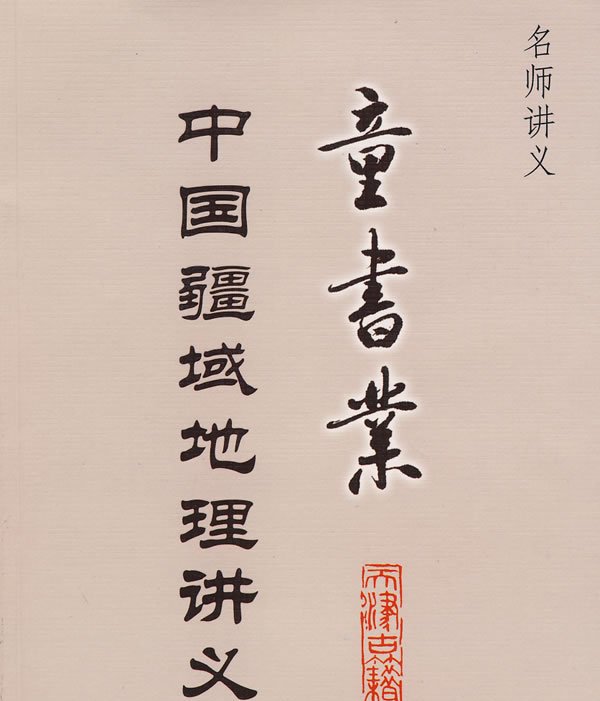 名师讲义
童書業
中国疆域地理讲义
天津古籍